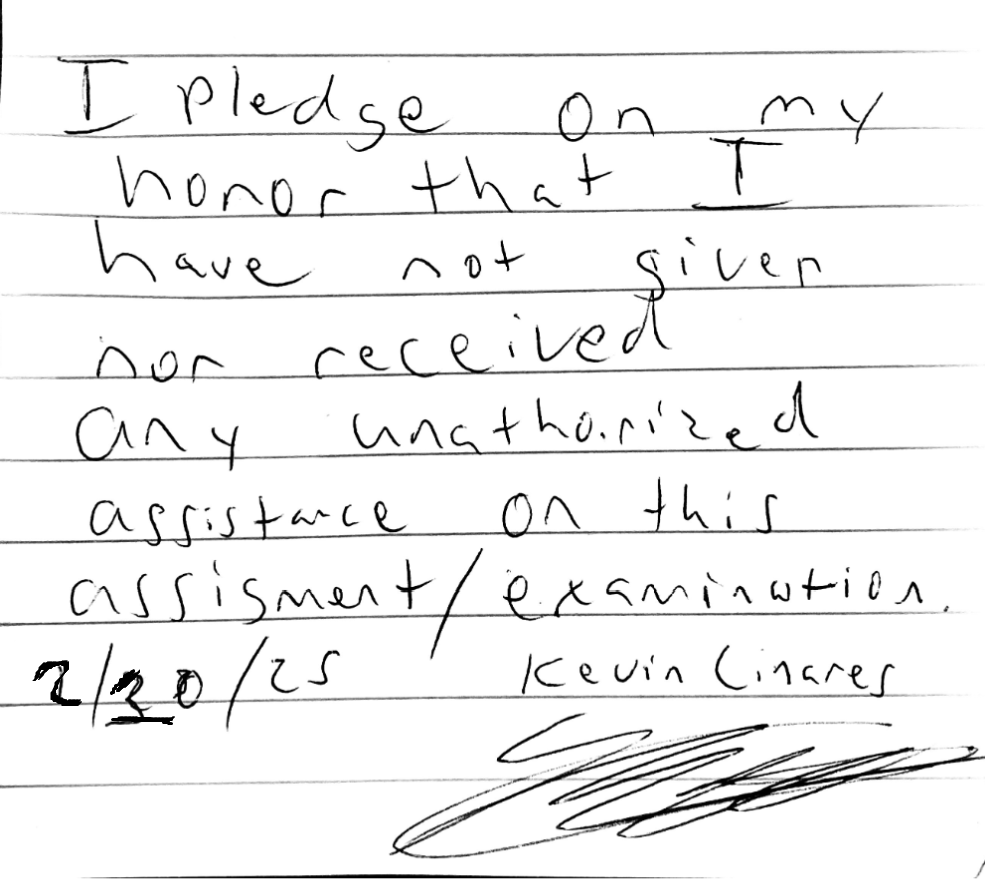 I pledge on my
honor that I
have not given
nor received
any unathorized
assistance on this
assisment/examination.
2/20/25 Kevin Linares